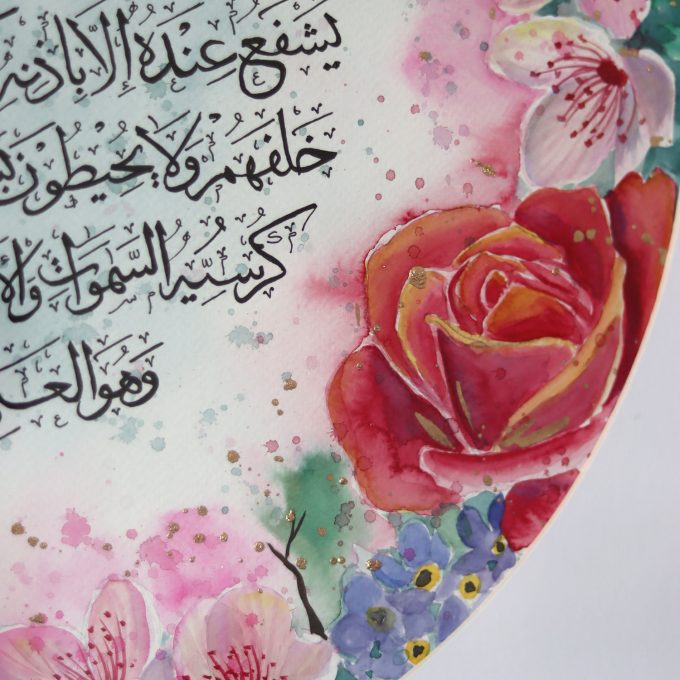 يَشْفَعُ عِنْدَهُ إِلَّا بِإِذْنِهِ
خَلْفَهُمْ وَلَا يُحِيْطُوْنَ
كُرْسِيُّهُ السَّمٰوَاتِ
وَهُوَ